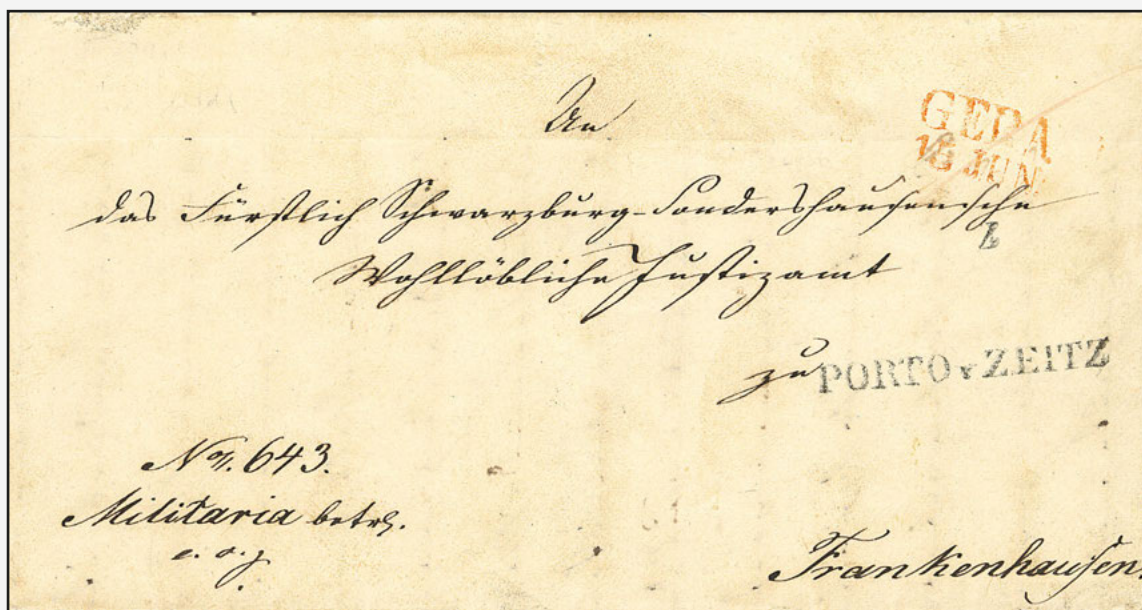 An
GERA
18 JUN.
das Fürstlich Schwarzburg-Sondershausensche
Wohllöbliche Justizamt
zu
PORTO v ZEITZ
No. 643.
Militaria betr.
Frankenhausen.